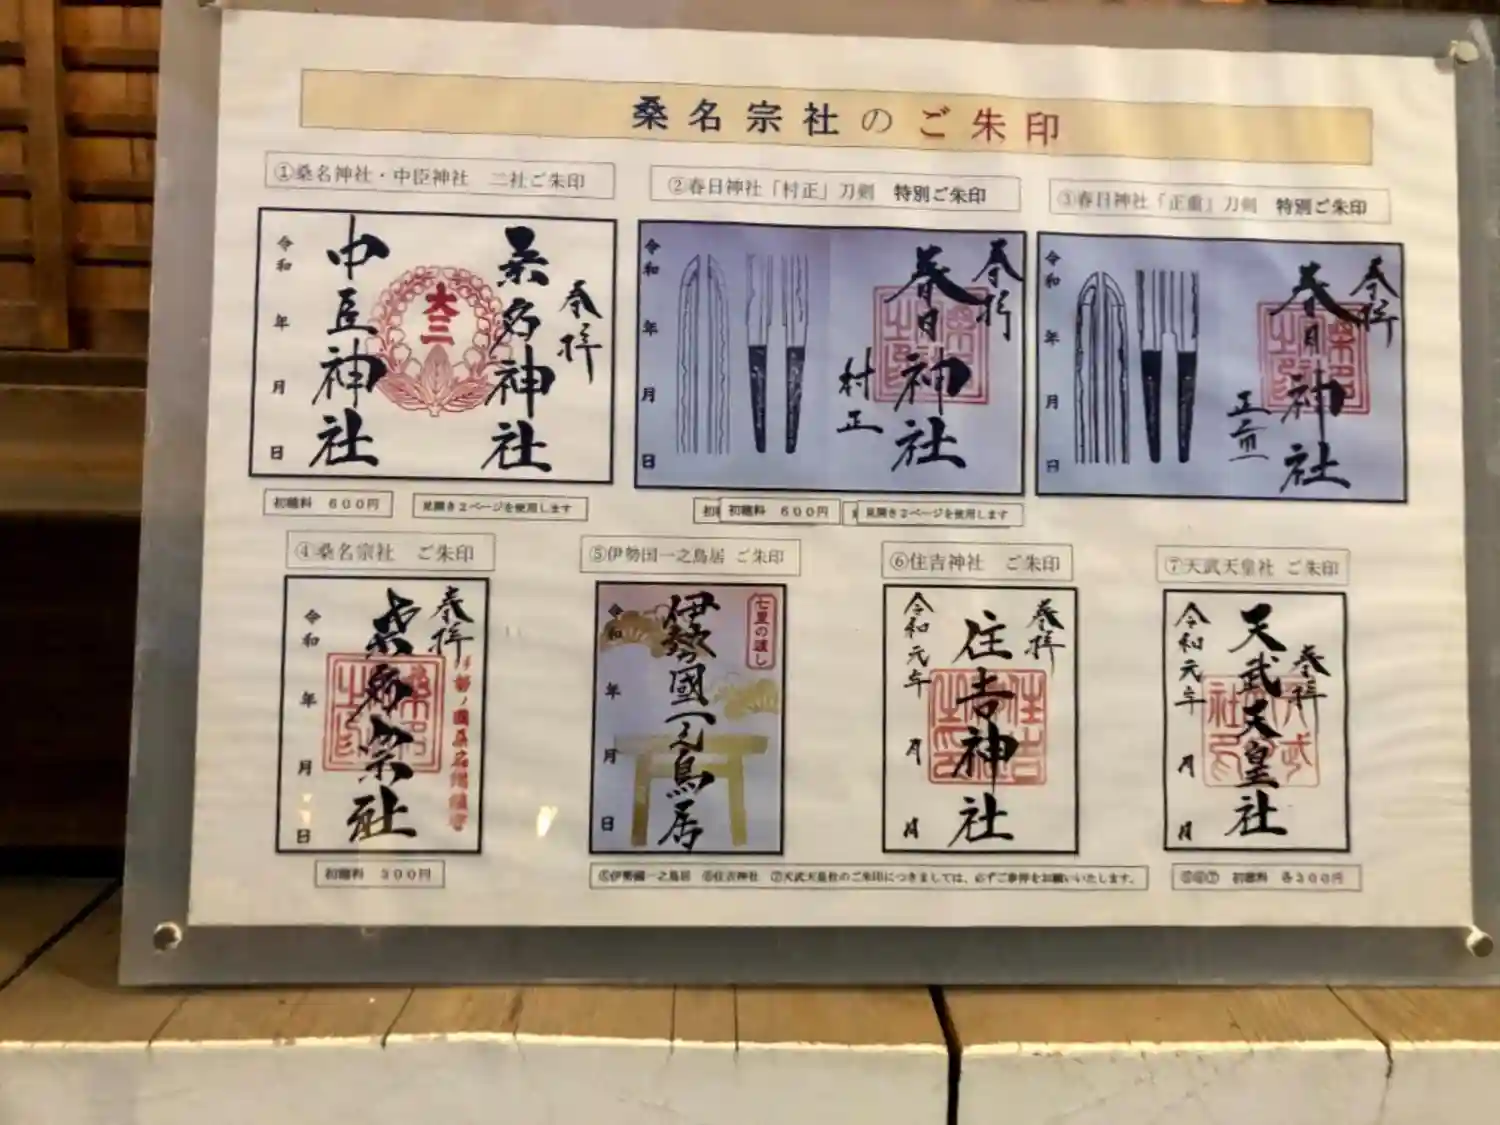 桑名宗社のご朱印
①桑名神社・中臣神社　二社ご朱印
②春日神社「村正」刀剣　特別ご朱印
③春日神社「正重」刀剣　特別ご朱印
奉拝
桑名神社
大三
中臣神社
令和　年　月　日
奉拝
春日神社
村正
令和　年　月　日
奉拝
春日神社
正重
令和　年　月　日
初穂料　６００円
見開き２ページを使用します
初穂料　６００円
見開き２ページを使用します
④桑名宗社　ご朱印
⑤伊勢国一之鳥居 ご朱印
⑥住吉神社　ご朱印
⑦天武天皇社 ご朱印
奉拝
桑名宗社
令和　年　月　日
七里の渡し
伊勢國一之鳥居
令和　年　月　日
奉拝
住吉神社
令和元年　月　日
奉拝
天武天皇社
令和元年　月　日
初穂料　３００円
⑤伊勢国一之鳥居　⑥住吉神社　⑦天武天皇社のご朱印につきましては、必ずご参拝をお願いいたします。
⑤⑥⑦　初穂料　各３００円